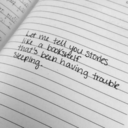 Let me tell you stories
like a bookshelf
that's been having trouble
sleeping.